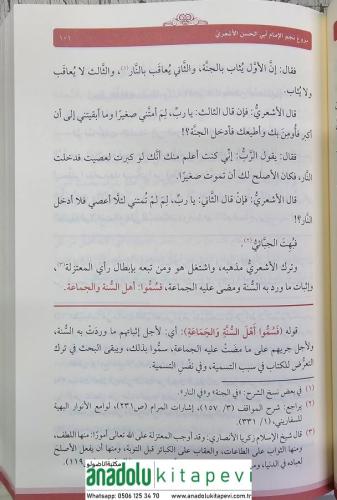 بزوغ نجم الإمام أبي الحسن الأشعري
١٠١
فقال: إنَّ الأوَّل يُثاب بالجنَّة، والثَّاني يُعاقَب بالنَّار(١)، والثالث لا يُعاقَب
ولا يُثاب.
قال الأشعريُّ: فإن قال الثالث: يا ربِّ، لِمَ أمتَّني صغيرًا وما أبقيتني إلى أن
أكبر فأومِنَ بك وأطيعك فأدخل الجنَّة؟!
فقال: يقول الرَّبُّ: إنِّي كنت أعلم منك أنَّك لو كبرت لعصيت فدخلت
النَّار، فكان الأصلح لك أن تموت صغيرًا.
قال الأشعريُّ: فإن قال الثَّاني: يا ربِّ، لمَ لمْ تُمتني لئلَّا أعصي فلا أدخل
النَّار؟!
فبُهِتَ الجبَّائيُّ(٢).
وترك الأشعريُّ مذهبه، واشتغل هو ومن تبعه بإبطال رأي المعتزلة(٣)،
وإثبات ما ورد به السنة ومضى عليه الجماعة، فسُمُّوا: أهل السنة والجماعة.
قوله (فَسُمُّوا أَهْلَ السُّنَّةِ وَالجَمَاعَةِ): أي: لأجل إثباتهم ما وردَتْ به السُّنة،
ولأجل جريهم على ما مضتْ عليه الجماعة، سمُّوا بذلك، ويبقى البحث في ترك
التعرُّض للكتاب في سبب التسمية، وفي نفْس التسمية.
(١) في بعض نسخ الشرح: «في الجنة» و«في النار».
(٢) يراجع: شرح المواقف (٣/ ١٥٧)، إشارات المرام (ص٢٣١)، لوامع الأنوار البهية
للسفاريني (١/ ٣٣١).
(٣) قال شيخ الإسلام زكريا الأنصاري: وقد أوجب المعتزلة على الله تعالى أمورًا: منها اللطف،
ومنها الثواب على الطاعات، والعقاب على الكبائر قبل التوبة، ومنها أن يفعل الأصلح
لعباده في الدنيا
مكتبة الاناضولو
anadolu kitapevi
Whatsapp: 0506 125 34 70
www.anadolukitapevi.com